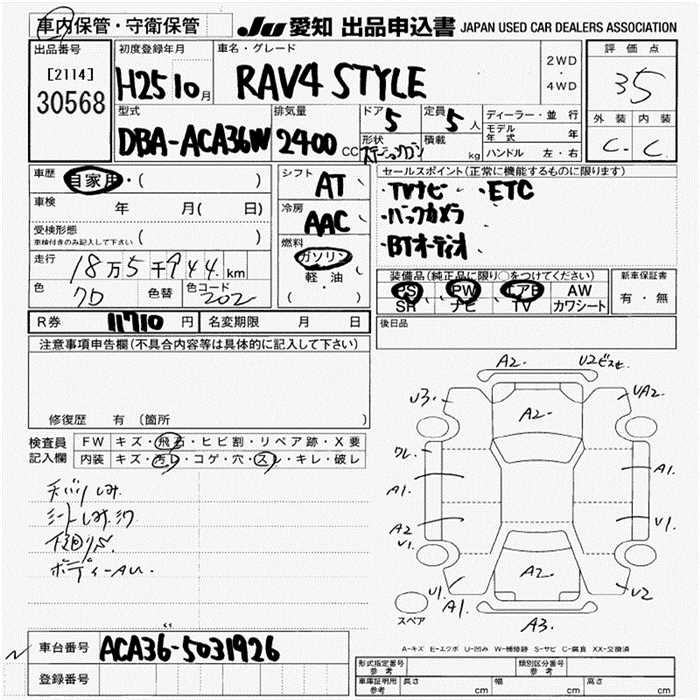 車内保管・守衛保管
JU 愛知 出品申込書 JAPAN USED CAR DEALERS ASSOCIATION
出品番号
[2114]
30568
初度登録年月
H25 10月
車名・グレード
RAV4 STYLE
2WD
・
4WD
評価点
3.5
外装 内装
C- C
型式
DBA-ACA36W
排気量
2400 CC
ドア
5
形状
ステーションワゴン
定員
5 人
積載
kg
ディーラー・並行
モデル年式 年
ハンドル 左・右
車歴
自家用・( )
車検 年 月( 日)
受検形態
車検付きのみ記入して下さい ( )
走行
18万5千944km
色
色替
色コード
202
シフト
AT
冷房
AAC
燃料
ガソリン
軽・油
( )
セールスポイント(正常に機能するものに限ります)
・TVナビ ・ETC
・バックカメラ
・BTオーディオ
装備品(純正品に限り○をつけてください)
PS PW エアB AW
SR ナビ TV カワシート
新車保証書
有・無
R券 11710 円
名変期限 月 日
後日品
注意事項申告欄(不具合内容等は具体的に記入して下さい)
修復歴 有(箇所 )
検査員
記入欄
FW キズ・飛石・ヒビ割・リペア跡・X要
内装 キズ・汚レ・コゲ・穴・スレ・キレ・破レ
シートしみ
A2
U2
U3
UA2
A2
A1
A1
A2
U1
U1
A2
U1
A1
U2
A3
スペア
A-キズ E-エクボ U-凹み W-補修跡 S-サビ C-腐食 XX-交換済
車台番号 ACA36-5031926
登録番号
形式指定番号
参考
類別区分番号
参考
車庫証明用
参考
長さ cm 幅 cm 高さ cm